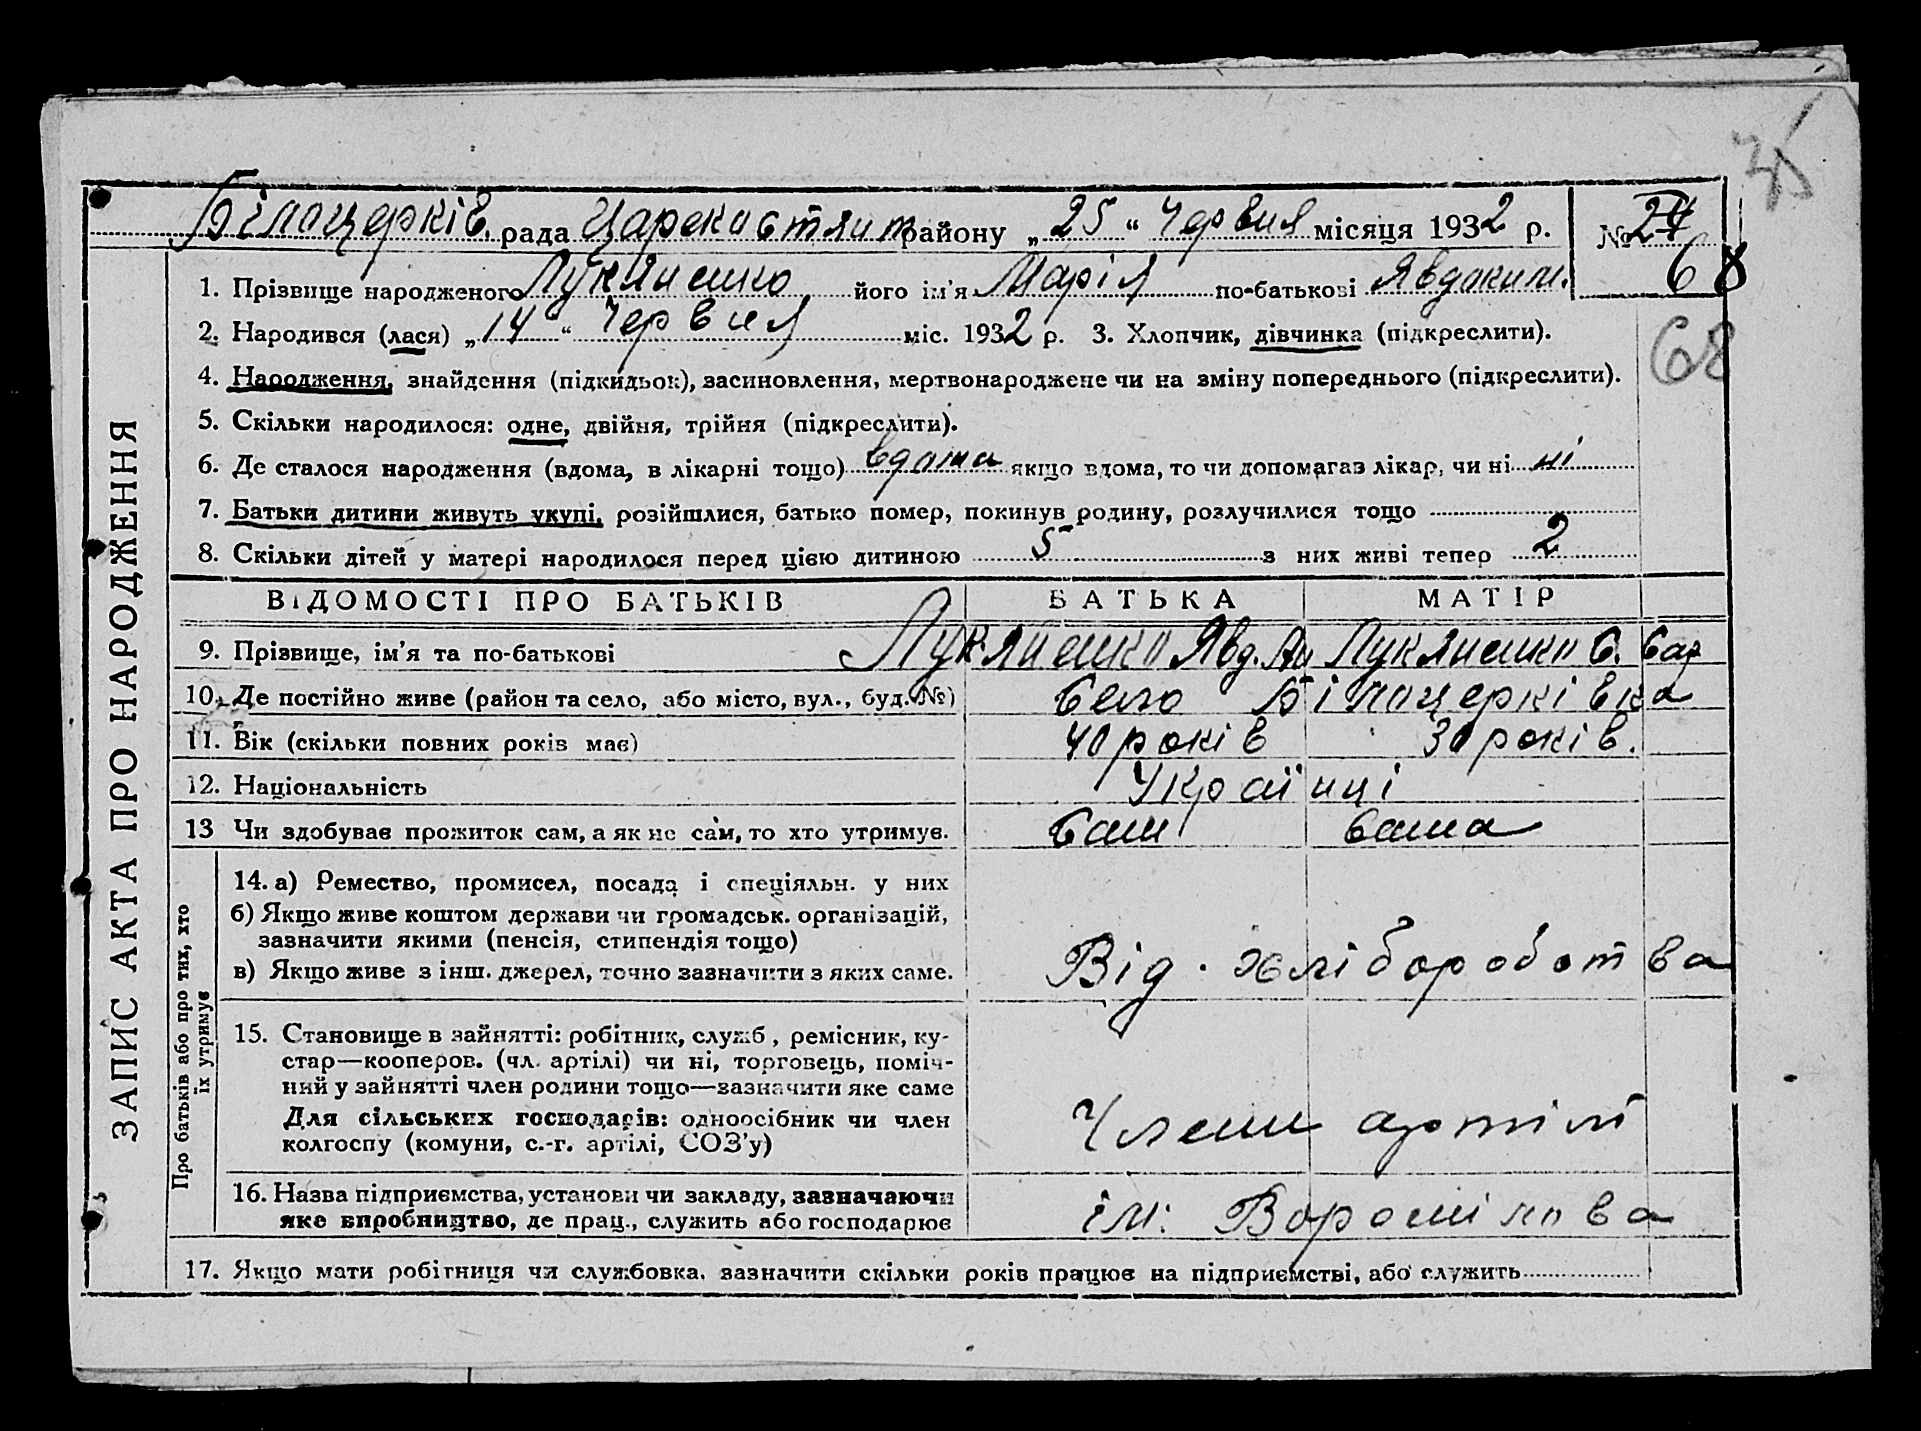 35
Білоцерків. рада Царекостянт району „25“ Червня місяця 1932 р. № 24
68
1. Прізвище народженого Лукяненко його ім'я Марія по-батькові Явдоким.
2. Народився (лася) „14“ Червня міс. 1932 р. 3. Хлопчик, дівчинка (підкреслити).
68
4. Народження, знайдення (підкидьок), засиновлення, мертвонароджене чи на зміну попереднього (підкреслити).
5. Скільки народилося: одне, двійня, трійня (підкреслити).
6. Де сталося народження (вдома, в лікарні тощо) вдома якщо вдома, то чи допомагав лікар, чи ні ні
7. Батьки дитини живуть укупі, розійшлися, батько помер, покинув родину, розлучилися тощо
8. Скільки дітей у матері народилося перед цією дитиною 5 з них живі тепер 2
ЗАПИС АКТА ПРО НАРОДЖЕННЯ
ВІДОМОСТІ ПРО БАТЬКІВ БАТЬКА МАТІР
9. Прізвище, ім'я та по-батькові Лукяненко Явд. Лукяненко Є.
10. Де постійно живе (район та село, або місто, вул., буд. №) Село Білоцерківка
11. Вік (скільки повних років має) 40 років 30 років.
12. Національність Українці
13 Чи здобуває прожиток сам, а як не сам, то хто утримує. Сам сама
Про батьків або про тих, хто їх утримує
14. а) Ремество, промисел, посада і спеціяльн. у них
б) Якщо живе коштом держави чи громадськ. організацій,
зазначити якими (пенсія, стипендія тощо)
в) Якщо живе з інш. джерел, точно зазначити з яких саме. Від. хліборобства
15. Становище в зайнятті: робітник, служб, ремісник, ку-
стар—кооперов. (чл. артілі) чи ні, торговець, поміч-
ний у зайнятті член родини тощо—зазначити яке саме
Для сільських господарів: одноосібник чи член
колгоспу (комуни, с.-г. артілі, СОЗ'у) Члени артілі
16. Назва підприємства, установи чи закладу, зазначаючи
яке виробництво, де прац., служить або господарює ім: Ворошілова
17. Якщо мати робітниця чи службовка, зазначити скільки років працює на підприємстві, або служить